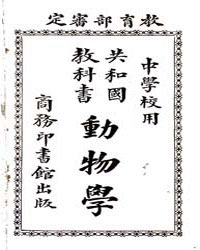 定審部育教
中學校用
共和國
教科書
動物學
商務印書館出版